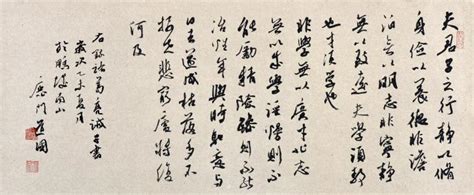 夫君子之行静以修
身俭以養德非澹
泊無以明志非寧静
無以致遠夫学須静
也才須学也
非学無以廣才非志
無以成学淫慢則不
能勵精險躁則不能
治性年與時馳意與
日去遂成枯落多不
接世悲守窮廬將復
何及
右录諸葛亮誡子書
歲次乙未夏月
於鹏城南山